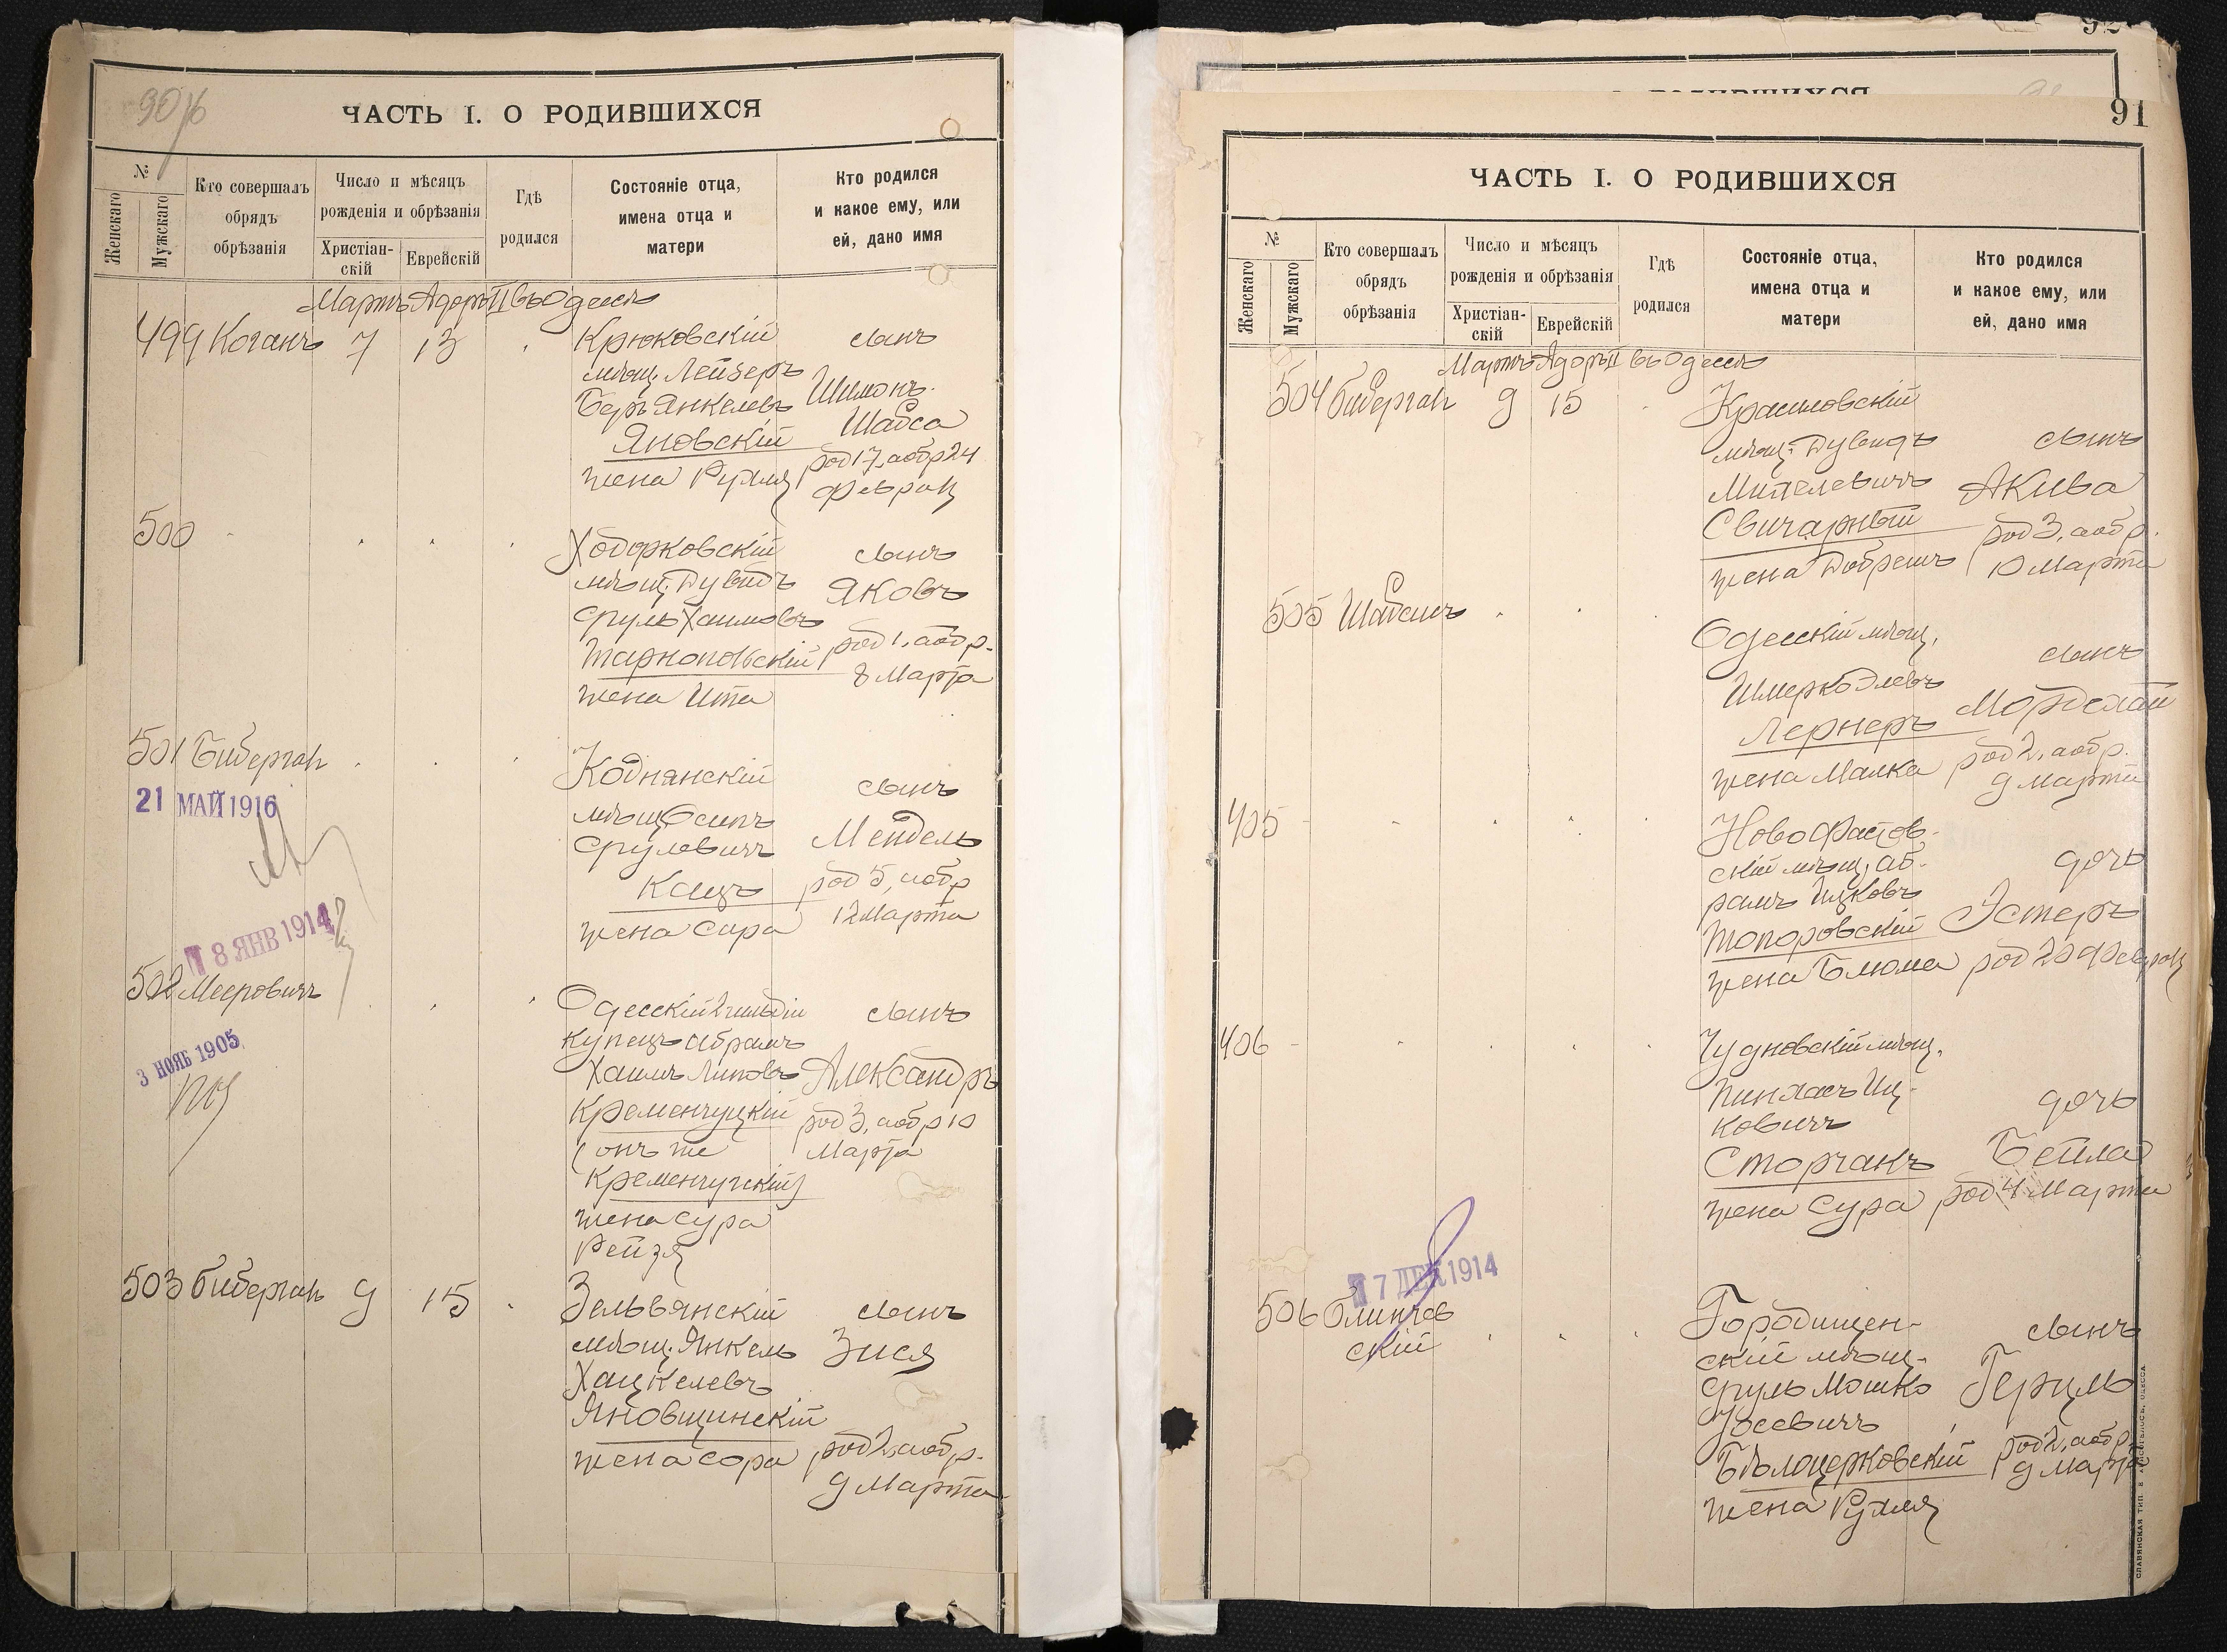 90 об
ЧАСТЬ I. О РОДИВШИХСЯ
№
Женскаго
Мужскаго
Кто совершалъ
обрядъ
обрѣзанія
Число и мѣсяцъ
рожденія и обрѣзанія
Христіан-
скій
Еврейскій
Гдѣ
родился
Состояніе отца,
имена отца и
матери
Кто родился
и какое ему, или
ей, дано имя
Мартъ Адоръ II въ Одессѣ
499 Коганъ 7 13
Крюковскій
мѣщ. Лейзеръ
Беръ Янкелевъ
Яновскій
жена Рухля
сынъ
Шимонъ
Шабса
род 17, а обр 24
феврал
500
Ходорковскій
мѣщ. Дувидъ
Сруль Хаимовъ
Тарнопольскій
жена Ита
сынъ
Яковъ
род 1, а обр.
8 Марта
501 Биберган
21 МАЙ 1916
Коднянскій
мѣщ Осипъ
Срулевичъ
Кацъ
жена Сара
сынъ
Мендель
род 5, а обр
12 Марта
8 ЯНВ 1914
502 Мееровичъ
3 НОЯБ 1905
Одесскій 2 гильдіи
купецъ Абрамъ
Хаимъ Липовъ
Кременчуцкій
(онъ же
Кременчугскій)
жена Сура
Рейзя
сынъ
Александръ
род 3, а обр 10
Марта
503 Биберган 9 15
Зельвянскій
мѣщ. Янкель
Хацкелевъ
Яновщинскій
жена Сора
сынъ
Зися
род 2, а обр.
9 Марта
92
91
ЧАСТЬ I. О РОДИВШИХСЯ
№
Женскаго
Мужскаго
Кто совершалъ
обрядъ
обрѣзанія
Число и мѣсяцъ
рожденія и обрѣзанія
Христіан-
скій
Еврейскій
Гдѣ
родился
Состояніе отца,
имена отца и
матери
Кто родился
и какое ему, или
ей, дано имя
Мартъ Адоръ II въ Одессѣ
504 Биберган 9 15
Красиловскій
мѣщ. Дувидъ
Михелевичъ
Свичарный
жена Добрешъ
сынъ
Акива
род 3, а обр.
10 Марта
505 Шабсисъ
Одесскій мѣщ.
Шмерко
Лернеръ
жена Малка
сынъ
Мордехай
род 2, а обр.
9 Марта
405
Новофастов-
скій мѣщ. Аб-
рамъ Ицковъ
Топоровскій
жена Блюма
дочь
Эстеръ
род 20 феврал
406
Чудновскій мѣщ.
Пинхасъ Иц-
ковичъ
Сторчакъ
жена Сура
дочь
Бейла
род 4 Марта
7 ДЕК 1914
506 Блинчев
скій
Городищен-
скій мѣщ.
Сруль Мошко
Іосевичъ
Бѣлоцерковскій
жена Рухля
сынъ
Герцль
род 2, а обр
9 Марта